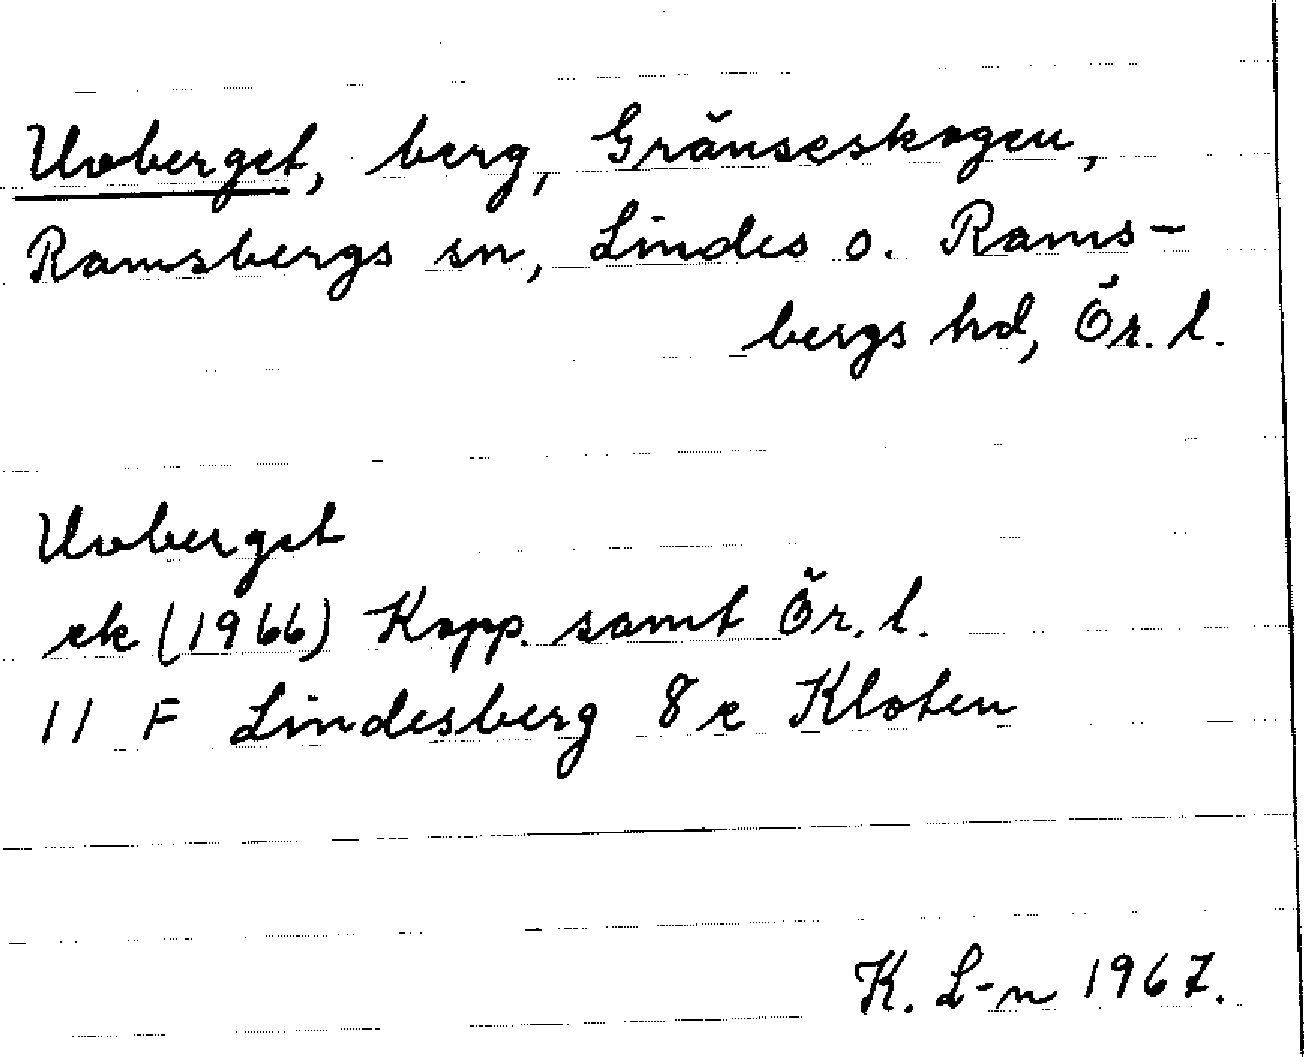 Uvberget, berg, Gränseskogen,
Ramsbergs sn, Lindes o. Rams-
bergs hd, Ör. l.
Uvberget
ek (1966) Kopp. samt Ör. l.
11 F Lindesberg 8 e Kloten
K. L-n 1967.